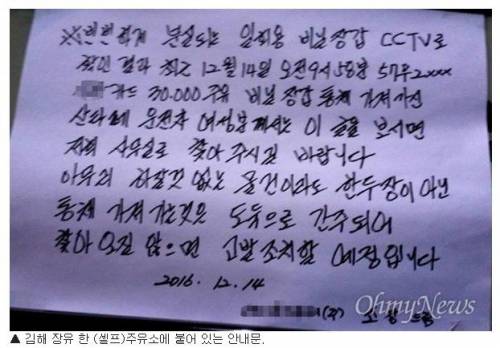 ※빈번하게 분실되는 일회용 비닐장갑 CCTV로
확인 결과 최근 12월14일 오전9시58분 57우2xxx
카드 30.000주유 비닐장갑 통체 가져가신
싼타페 운전자 여성분께서는 이 글을 보시면
저희 사무실로 찾아 주시길 바랍니다
아무리 하잘것 없는 물건이라도 한두장이 아닌
통체 가져가는것은 도둑으로 간주되어
찾아 오질 않으면 고발조치할 예정입니다
2016. 12. 14
(주) 소장 드림
OhmyNews
▲ 김해 장유 한 (셀프)주유소에 붙어 있는 안내문.